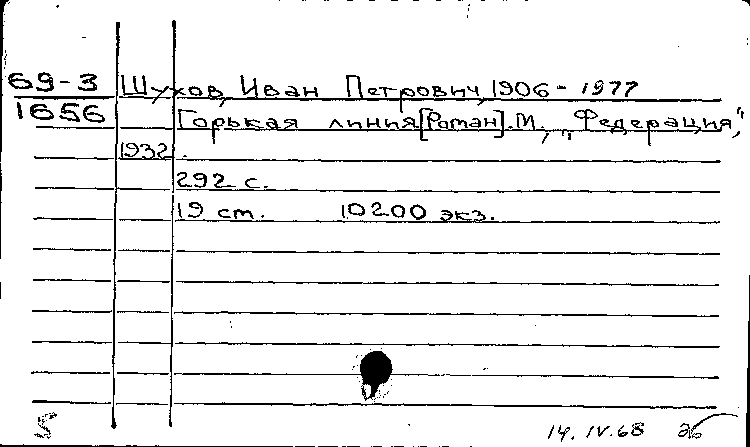 69-3 Шухов, Иван Петрович, 1906 - 1977
1656 Горькая линия [Роман]. М., „Федерация",
1932.
292 с.
19 см. 10200 экз.
5 14.IV.68